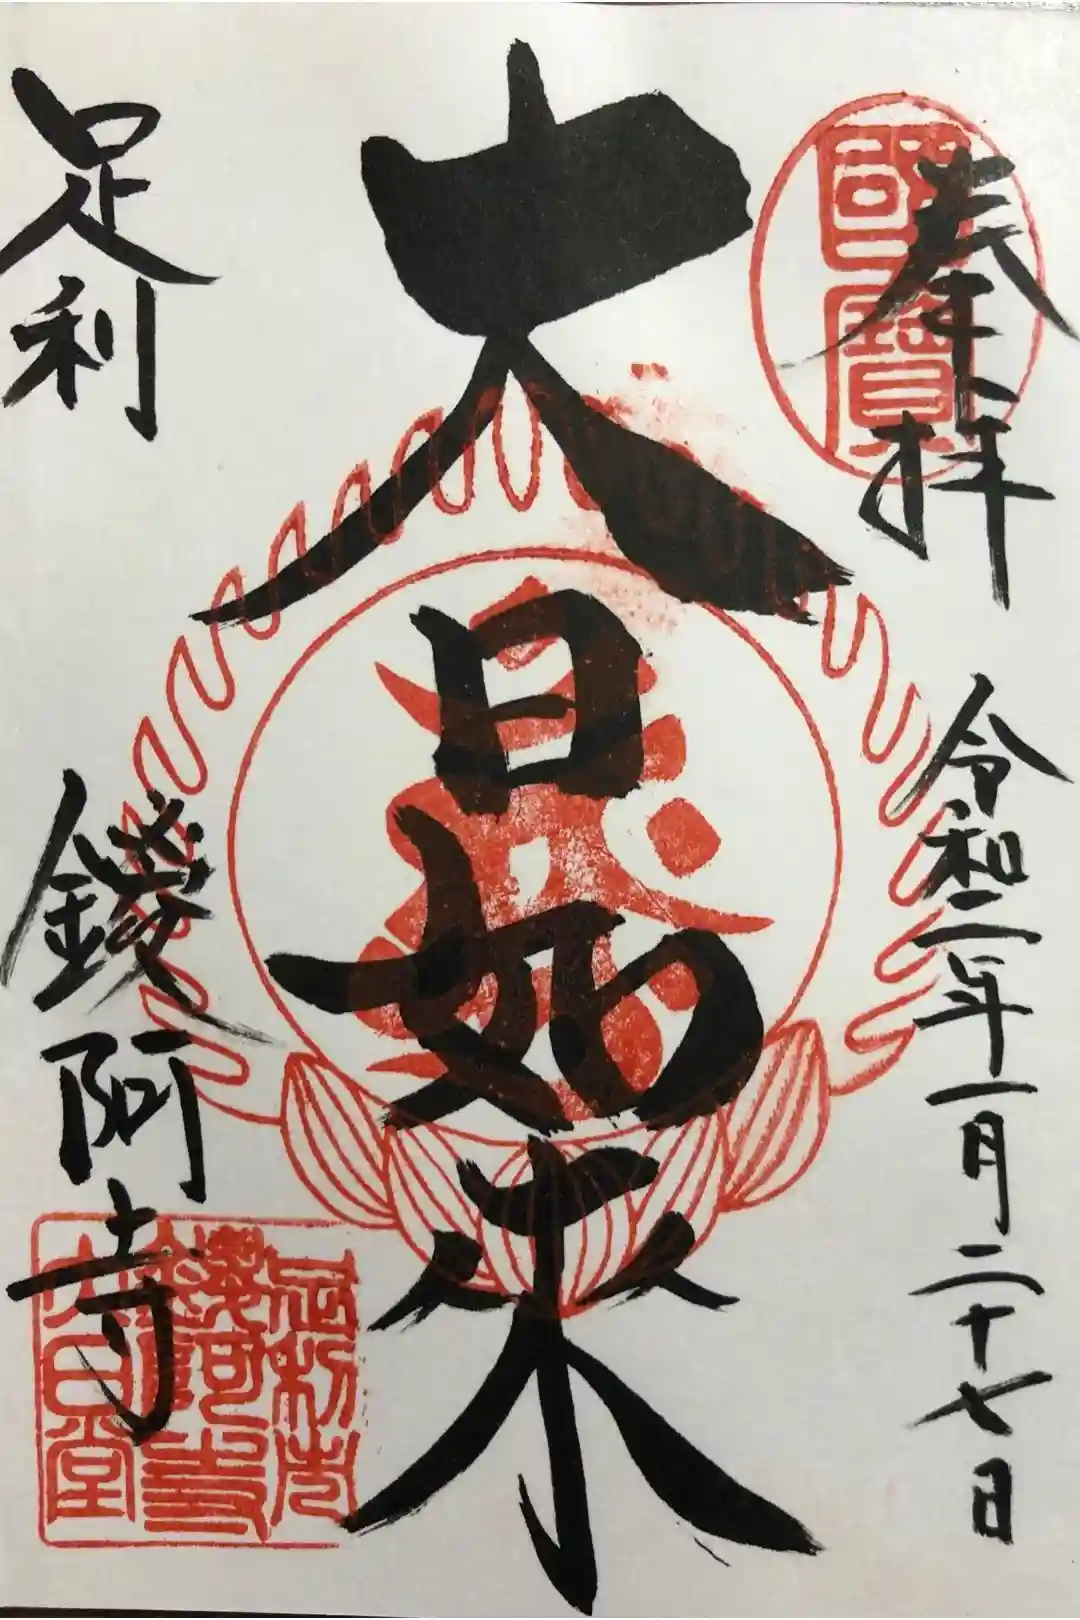 奉拝
國寶
令和二年一月二十七日
大日如来
足利
鑁阿寺
足利市
鑁阿寺
大日堂